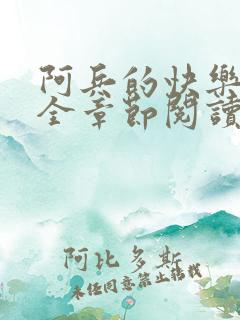 阿兵的快樂
全章節閱讀
阿比多斯
未经同意禁止转载